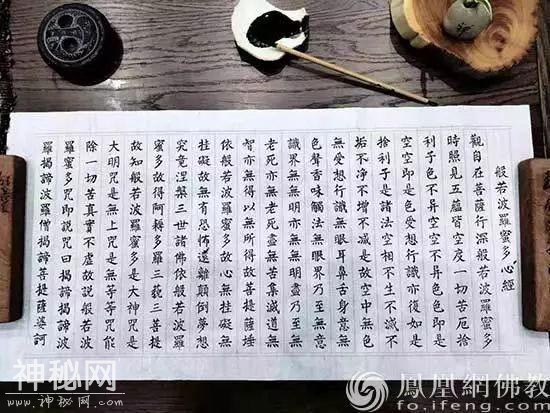 般若波羅蜜多心經
觀自在菩薩行深般若波羅蜜多
時照見五蘊皆空度一切苦厄捨
利子色不异空空不异色色即是
空空即是色受想行識亦復如是
捨利子是諸法空相不生不滅不
垢不净不增不减是故空中無色
無受想行識無眼耳鼻舌身意無
色聲香味觸法無眼界乃至無意
識界無無明亦無無明盡乃至無
老死亦無老死盡無苦集滅道無
智亦無得以無所得故菩提薩埵
依般若波羅蜜多故心無挂礙無
挂礙故無有恐怖遠離顛倒夢想
究竟涅槃三世諸佛依般若波羅
蜜多故得阿耨多羅三藐三菩提
故知般若波羅蜜多是大神咒是
大明咒是無上咒是無等等咒能
除一切苦真實不虛故說般若波
羅蜜多咒即說咒曰揭諦揭諦波
羅揭諦波羅僧揭諦菩提薩婆訶
神秘网
www.神秘网.com
鳳凰網佛教
fo.ifeng.com